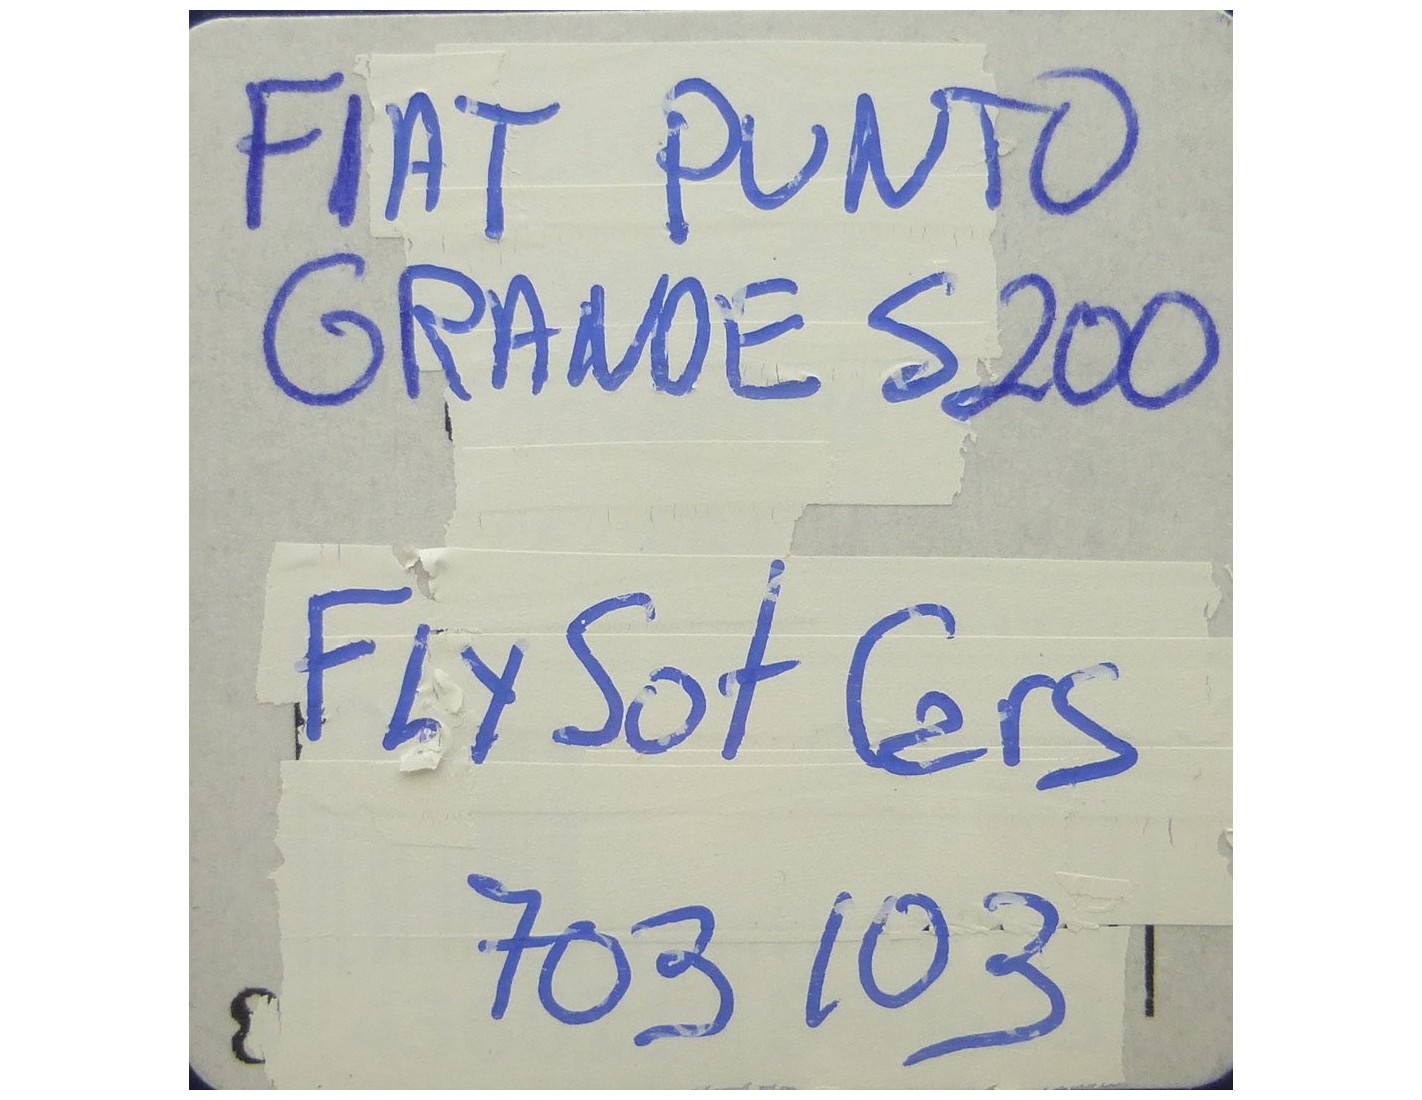 FIAT PUNTO
GRANDE S200
FLy Sot Cers
703 103